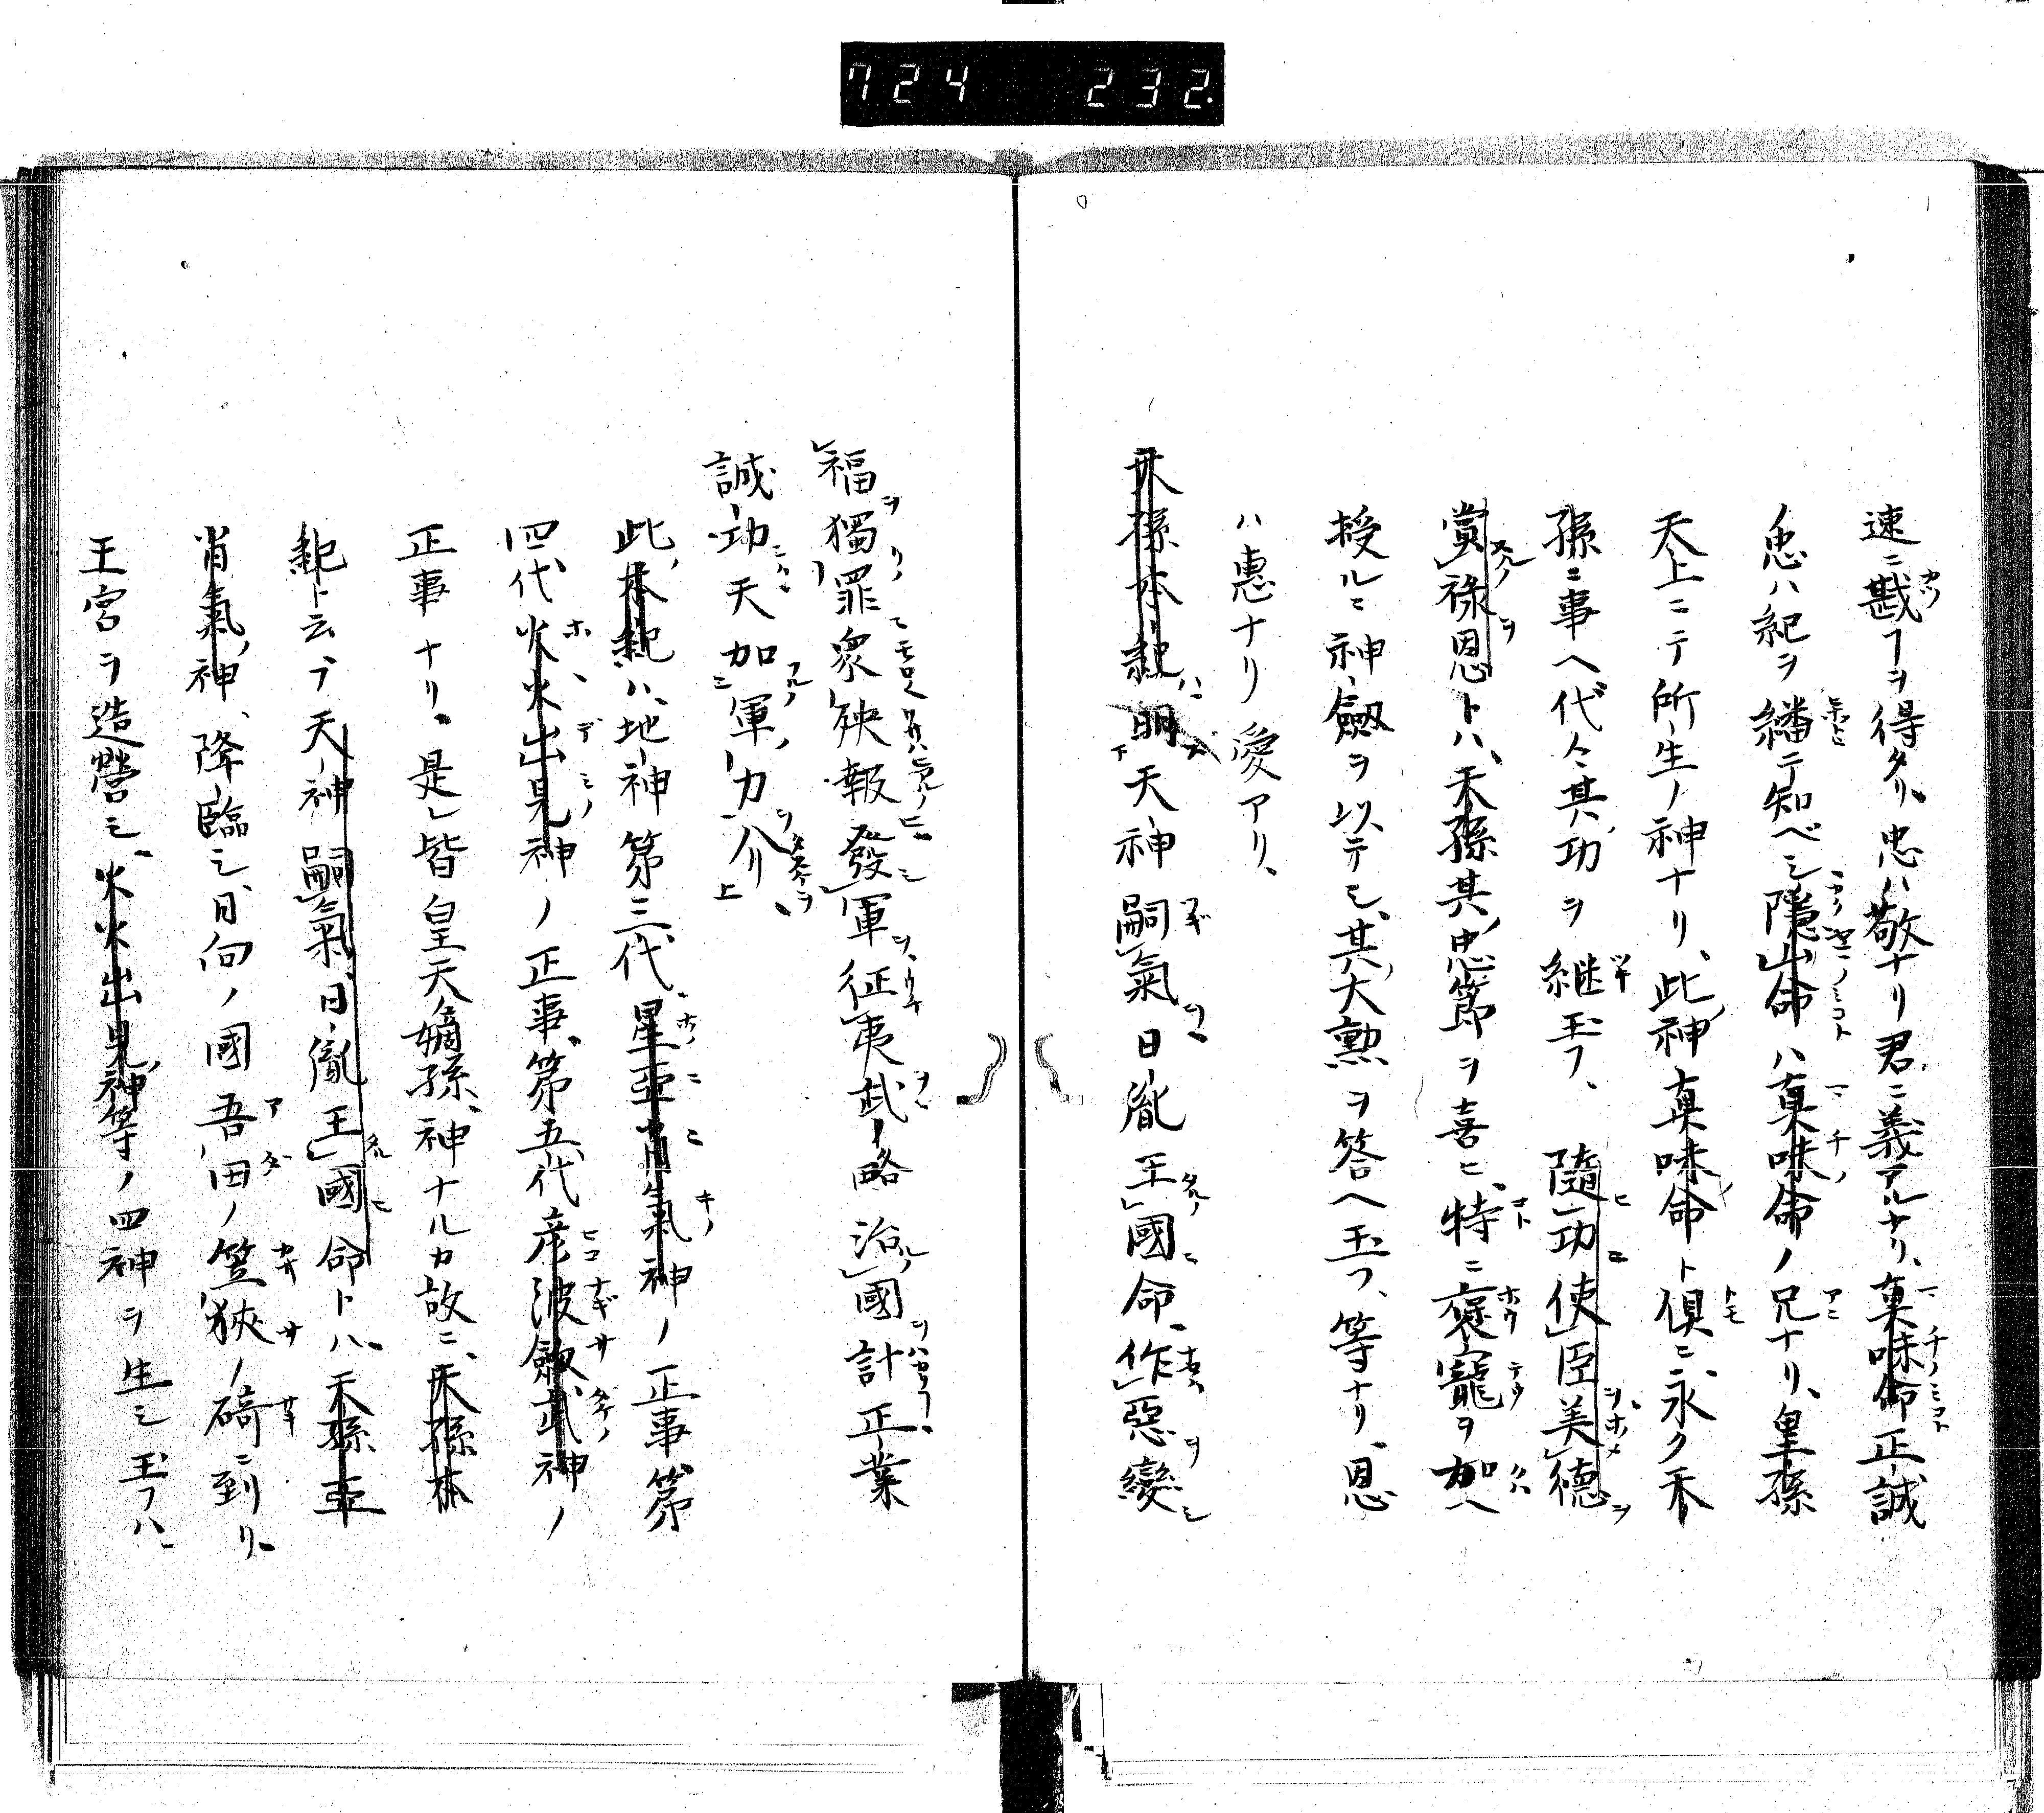 724 232.
速ニ戡フヲ得タリ、忠ハ敬ナリ君ニ義アルナリ、真味命正誠
ノ忠ハ紀ヲ繙テ知ベシ隱山命ハ真味命ノ兄ナリ、皇孫
天上ニテ所生ノ神ナリ、此神真味命ト倶ニ、永ク天
孫ニ事ヘ代々其功ヲ継玉フ、隨功使臣美德
賞祿恩トハ、天孫其忠節ヲ喜ヒ、特ニ褒寵ヲ加ヘ
授ルニ神劔ヲ以テシ、其大勲ヲ答ヘ玉フ、等ナリ、恩
ハ惠ナリ愛アリ、
天孫本紀ハ明天神嗣氣日胤王國命、作惡變
福獨罪衆殃報發軍征夷武略治國計正業
誠功天加軍力介上
此本紀ハ、地神第三代、星亜肖氣神ノ正事第
四代火火出見神ノ正事、第五代彦波劔武神ノ
正事ナリ、是皆皇天嫡孫、神ナルカ故ニ、天孫本
紀ト云フ天神嗣氣、日胤王國命トハ、天孫亜
肖氣神、降臨シ、日向ノ國吾田ノ笠狹ノ碕ニ到リ、
王宮ヲ造營シ、火火出見神等ノ四神ヲ生シ玉フハ、